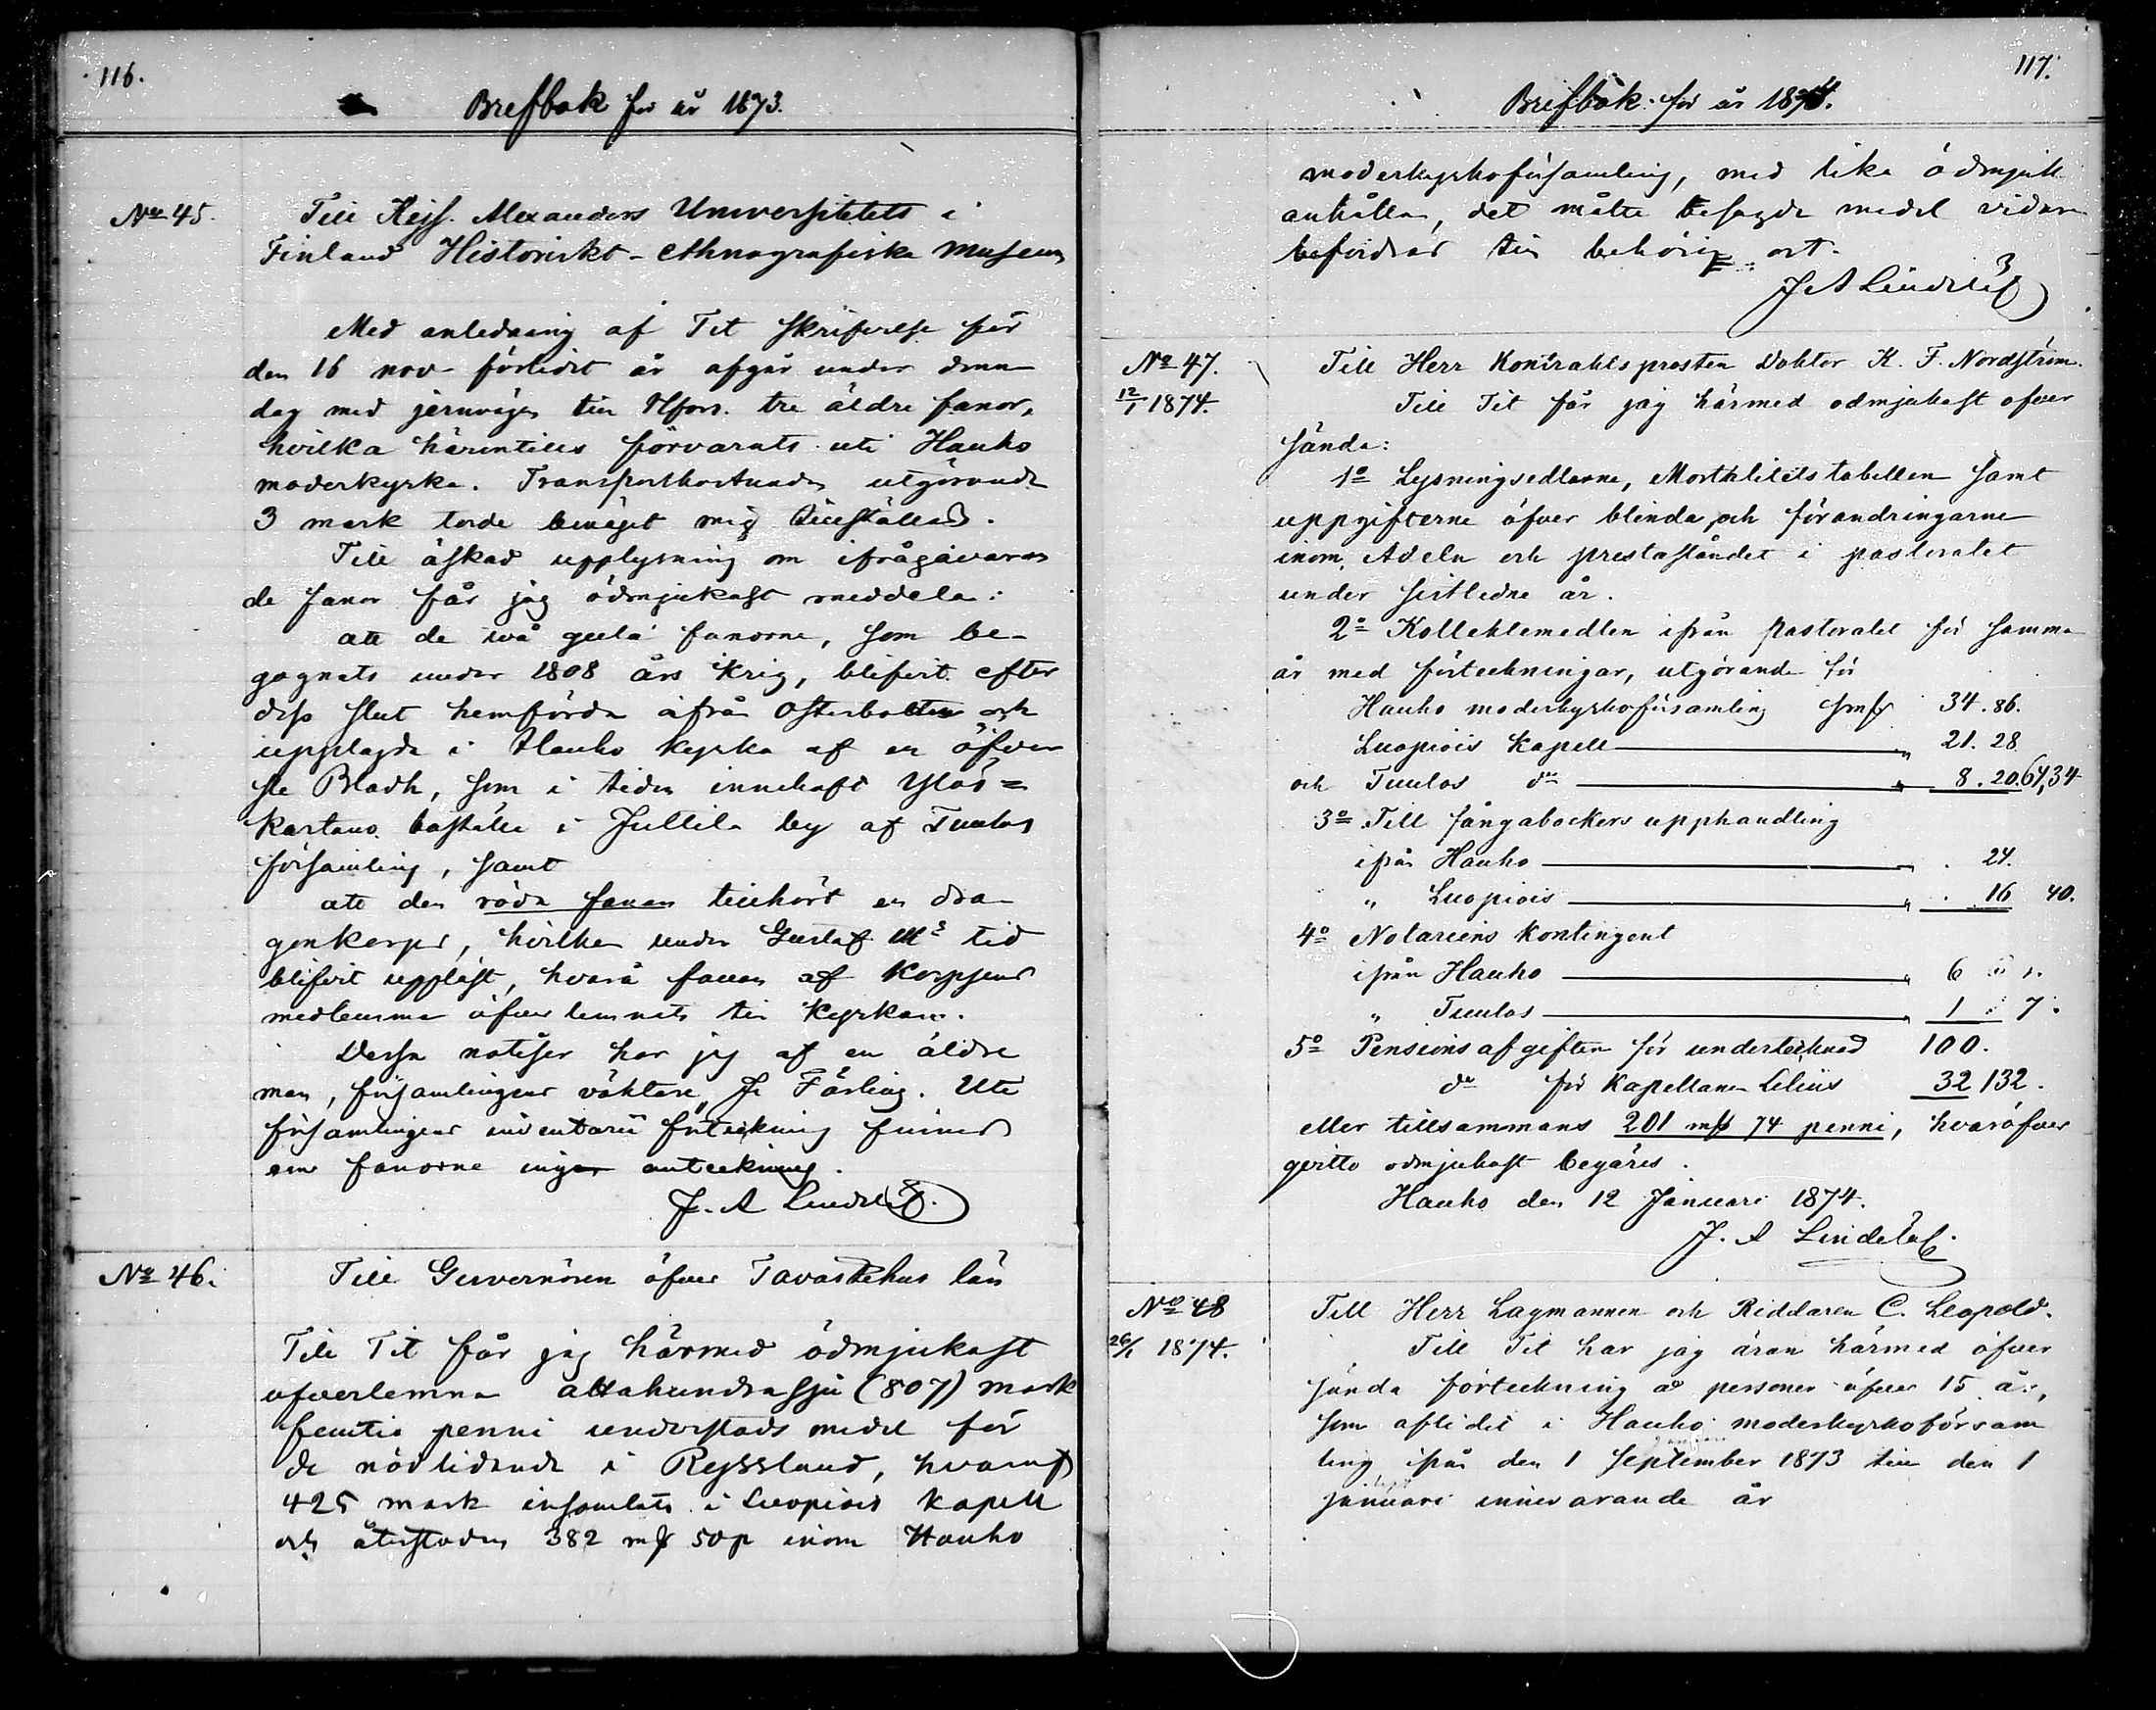 116.
Brefbok för år 1873.
No 45.
Till Kejs. Alexanders Universitetets i
Finland Historiskt-ethnografiska Museum
Med anledning af Tit skrifvelse för
den 16 nov förlidet år afgår under denna
dag med jernvägen till Hfors. tre äldre fanor,
hvilka härintills förvarats uti Hauho
moderkyrka. Transportkostnaden utgörande
3 mark torde benäget mig tillställas.
Till äskad upplysning om ifrågavaran
de fanor får jag ödmjukast meddela:
att de två gula fanorne, som be-
gagnats under 1808 års krig, blifvit efter
dess slut hemförda ifrån Österbotten och
upplagde i Hauho kyrka af en öfver
ste Bladh, som i tiden innehaft Ylös=
kartano boställe i Juttila by af Tuulos
församling, samt
att den röda fanan tillhört en dra-
gonkorps, hvilken under Gustaf III:s tid
blifvit upplöst, hvarå fanan af korpsens
medlemmar öfverlemnats till kyrkan.
Dessa notiser har jag af en äldre
man, församlingens väktare, J. Färling. Uti
församlingens inventarii förteckning finnes
om fanorne ingen anteckning.
J. A Lindelöf.
No 46.
Till Guvernören öfver Tavastehus län
Till Tit får jag härmed ödmjukast
öfverlemna åttahundrasju (807) mark
femtio penni understöds medel för
de nödlidande i Ryssland, hvaraf
425 mark insamlats i Luopiois kapell
och återstoden 382 mk 50 p inom Hauho
117.
Brefbok för år 1874.
moderkyrkoförsamling, med lika ödmjuk
anhållan, det måtte besagde medel vidare
befordras till behörig ort.
J A Lindelöf
No 47.
12/1 1874.
Till Herr Kontraktsprosten Doktor K. F. Nordström.
Till Tit får jag härmed ödmjukast öfver
sända:
1o Lysningsedlarne, Mortalitetstabellen samt
uppgifterne öfver blinda, och förandringarne
inom Adeln och prestaståndet i pastoratet
under sistledne år.
2o Kollektemedlen ifrån pastoratet för samma
år med förteckningar, utgörande för
Hauho moderkyrkoförsamling Smk 34. 86.
Luopiois Kapell " 21. 28
och Tuulos do " 8. 20. 64,34
3o Till fångaböckers upphandling
ifrån Hauho " 24.
" Luopiois " 16 40.
4o Notariens kontingent
ifrån Hauho " 6 "
" Tuulos " 1 " 7.
5o Pensionsafgiften för undertecknad 100.
do för Kapellanen Lilius 32 132.
eller tillsammans 201 mk 74 penni, hvaröfver
qvitto ödmjukast begäres.
Hauho den 12 Januari 1874.
J. A Lindelöf.
No 48
26/1 1874.
Till Herr Lagmannen och Riddaren C. Leopold.
Till Tit har jag äran härmed öfver
sända förteckning å personer öfver 15 år,
som aflidit i Hauho moderkyrkoförsam
ling ifrån den 1 September 1873 till den 1
januari innevarande år